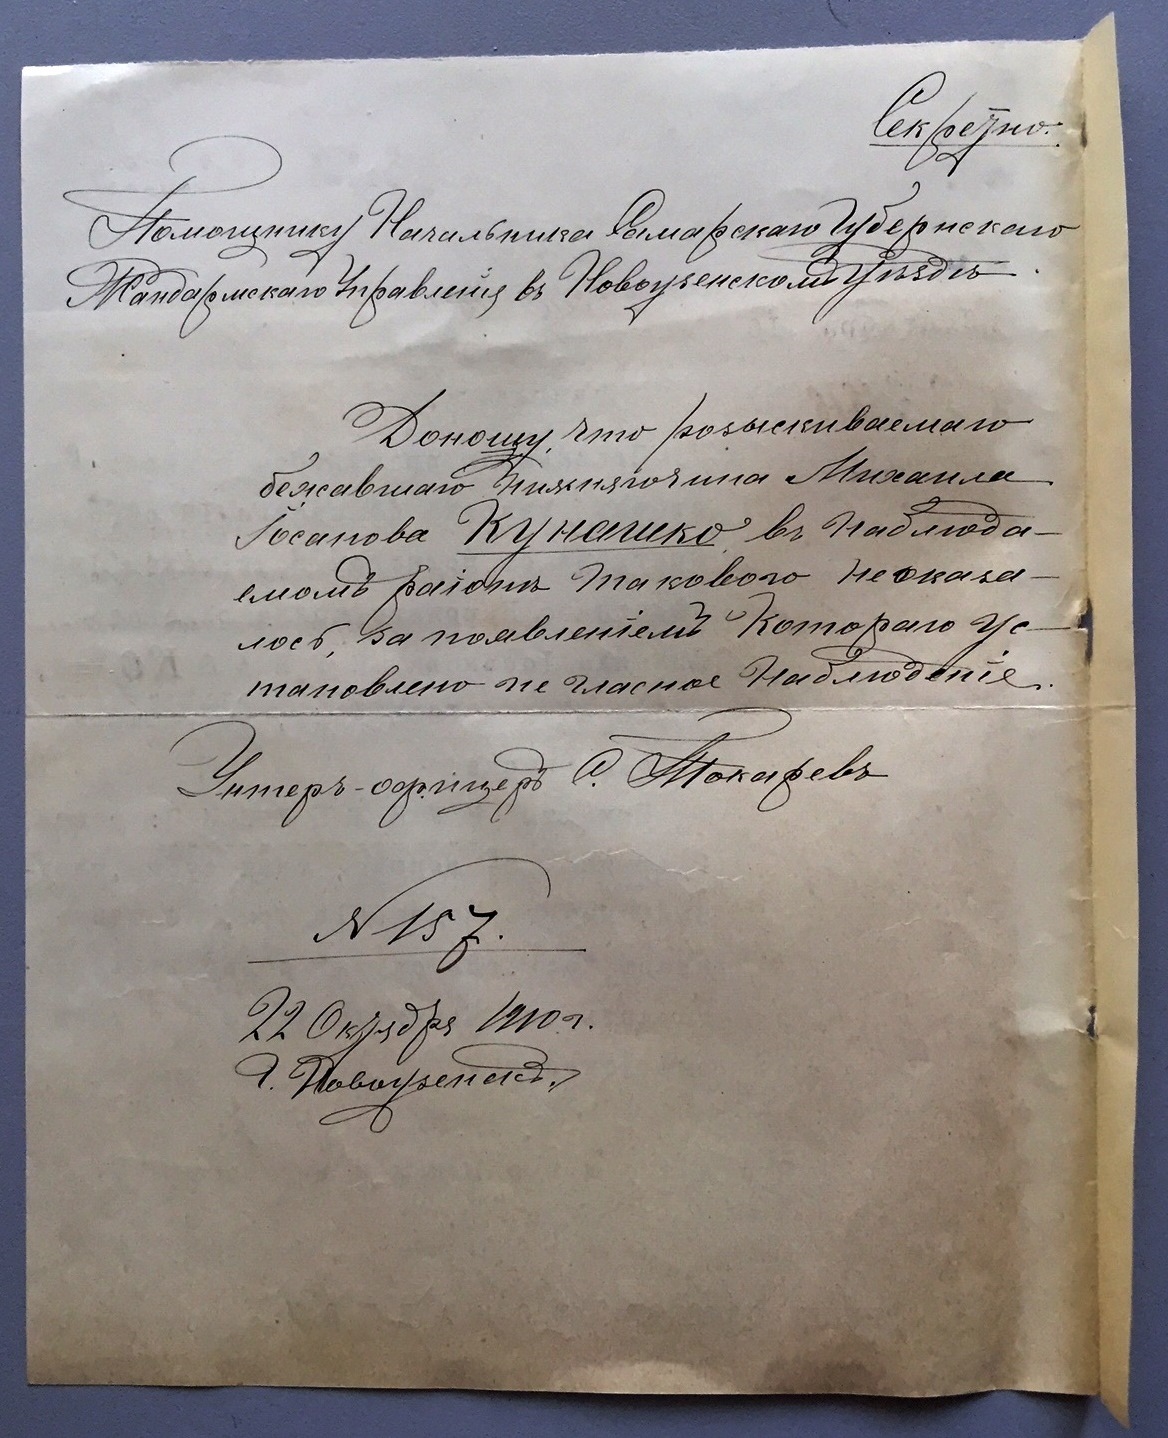 Секретно.
Помощнику Начальника Самарскаго Губернскаго
Жандармскаго Управленія въ Новоузенскомъ Уѣздѣ.
Доношу, что розыскиваемаго
бежавшаго Михаила
Іосапова Кунашко, въ наблюда-
емомъ раіонѣ такового не оказа-
лось, за появленіемъ Котораго ус-
тановлено не гласное Наблюденіе.
Унтеръ-офицеръ С. Токаревъ
N 157.
22 Октября 1910 г.
Г. Новоузенскъ.